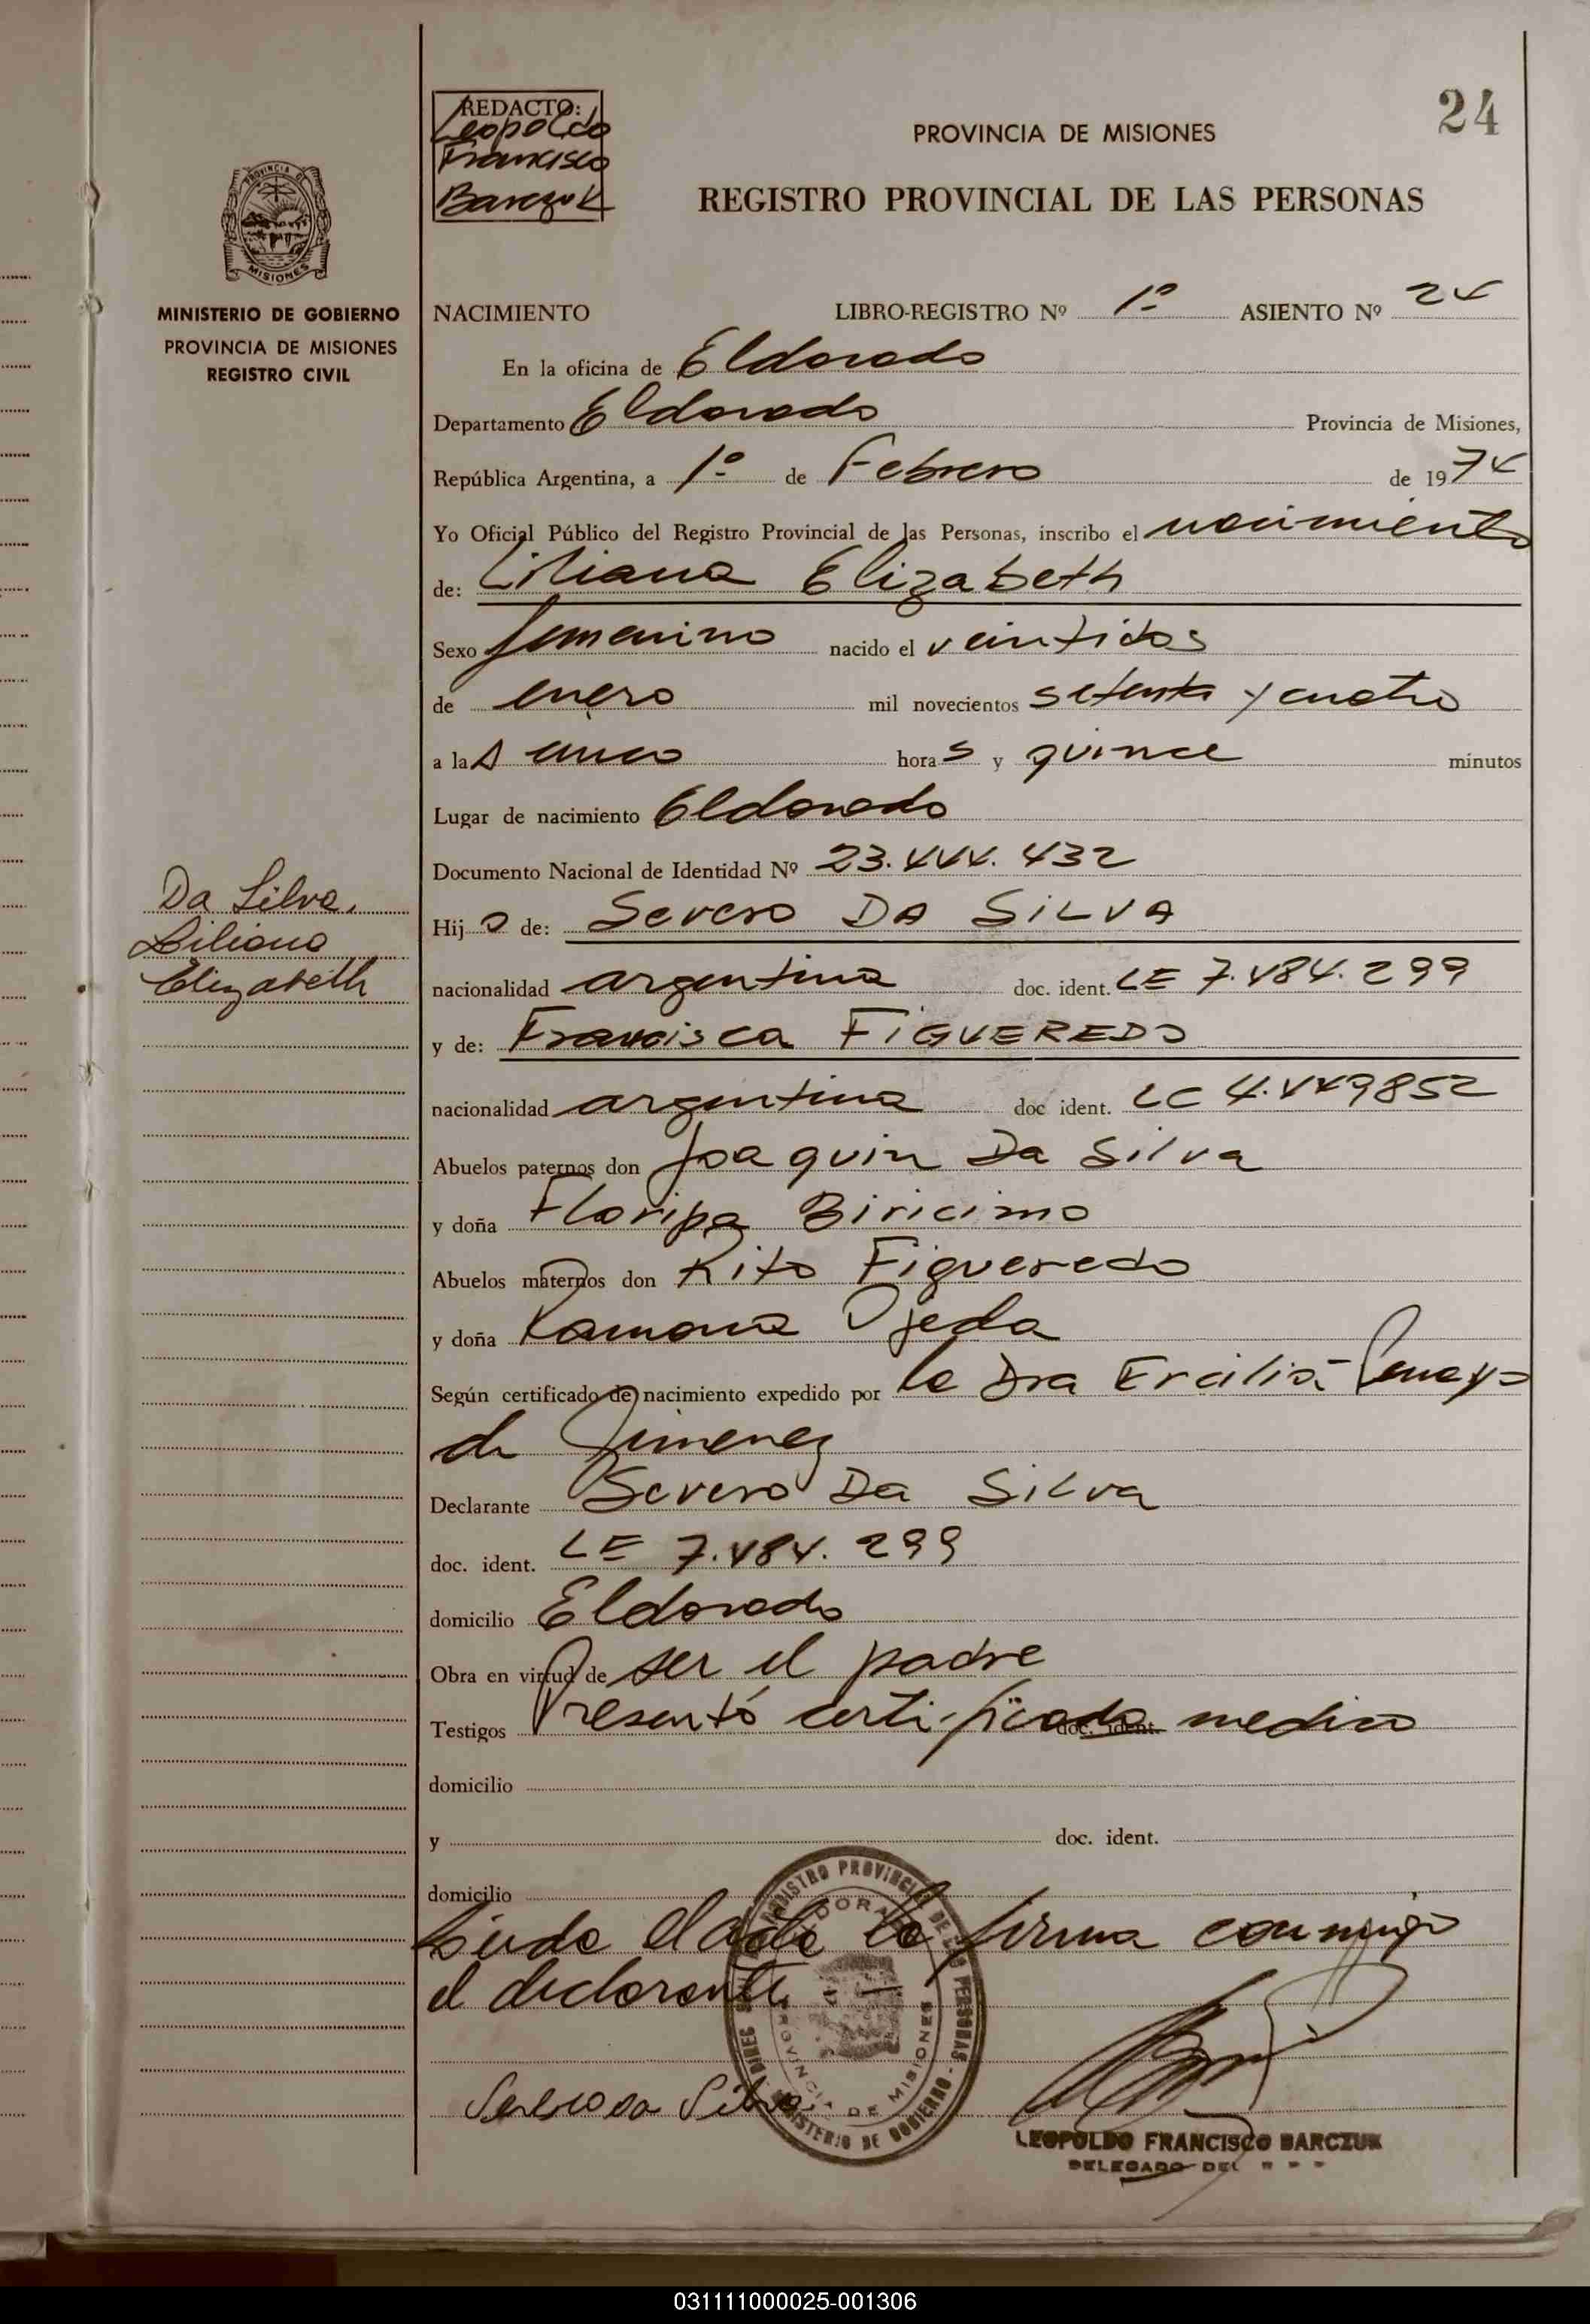 24
REDACTO:
Leopoldo
Francisco
Barczuk
PROVINCIA DE MISIONES
REGISTRO PROVINCIAL DE LAS PERSONAS
PROVINCIA DE
MISIONES
MINISTERIO DE GOBIERNO
PROVINCIA DE MISIONES
REGISTRO CIVIL
NACIMIENTO LIBRO-REGISTRO Nº 1º ASIENTO Nº 24
En la oficina de Eldorado
Departamento Eldorado Provincia de Misiones,
República Argentina, a 1º de Febrero de 1974
Yo Oficial Público del Registro Provincial de las Personas, inscribo el nacimiento
de: Liliana Elizabeth
Sexo femenino nacido el veintidos
de enero mil novecientos setenta y cuatro
a las cinco horas y quince minutos
Lugar de nacimiento Eldorado
Documento Nacional de Identidad Nº 23.444.432
Da Silva,
Liliana
Elizabeth
Hija de: Severo DA SILVA
nacionalidad argentina doc. ident. LE 7.484.299
y de: Francisca FIGUEREDO
nacionalidad argentina doc ident. LC 4.449852
Abuelos paternos don Joaquin Da Silva
y doña Floripa Biricimo
Abuelos maternos don Rito Figueredo
y doña Ramona Ojeda
Según certificado de nacimiento expedido por la Dra Ercilia
de Jimenez
Declarante Severo Da Silva
doc. ident. LE 7.484.299
domicilio Eldorado
Obra en virtud de ser el padre
Testigos Presentó certificado doc. ident. medico
domicilio
y doc. ident.
domicilio
Leida el acta la firma conmigo
el declarante
REGISTRO PROVINCIAL DE LAS PERSONAS - MINISTERIO DE GOBIERNO
ELDORADO
PROVINCIA DE MISIONES
Severo Da Silva
LEOPOLDO FRANCISCO BARCZUK
DELEGADO DEL
031111000025-001306